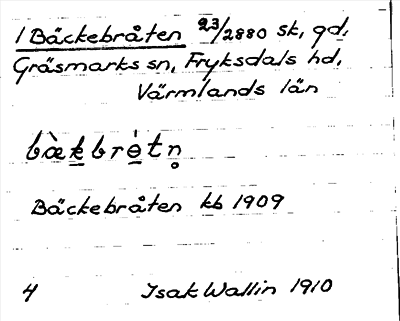 1 Bäckebråten 23/2880 sk, gd,
Gräsmarks sn, Fryksdals hd,
Värmlands län
bæ̀k̠brò̠tn̥
Bäckebråten kb 1909
4 Isak Wallin 1910